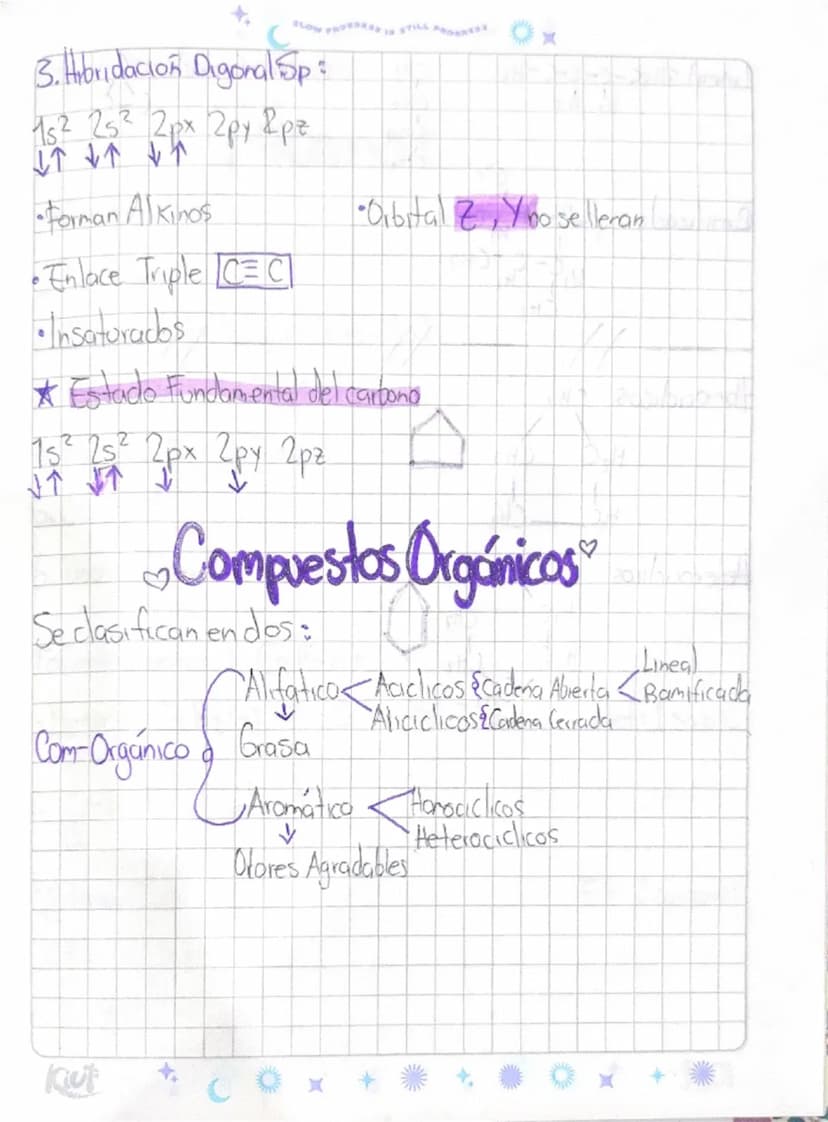 SLOW PROGRESS IS STILL PROGRESS
3. Hibridación Digonal Sp:
1s² 2s² 2px 2py 2pz
↓↑ ↓↑ ↓↑
•Forman Alkinos
•Orbital Z, Y no se lleran
•Enlace Triple C≡C
•Insaturados
★ Estado Fundamental del carbono
1s² 2s² 2px 2py 2pz
↓↑ ↓↑ ↓ ↓
Compuestos Orgánicos
Se clasifican en dos:
Lineal
Alifático < Aciclicos {Cadena Abierta < Ramificada
↓ Aliciclicos {Cadena Cerrada
Com-Orgánico { Grasa
Aromático < Homociclicos
↓ Heterociclicos
Olores Agradables
Kiut